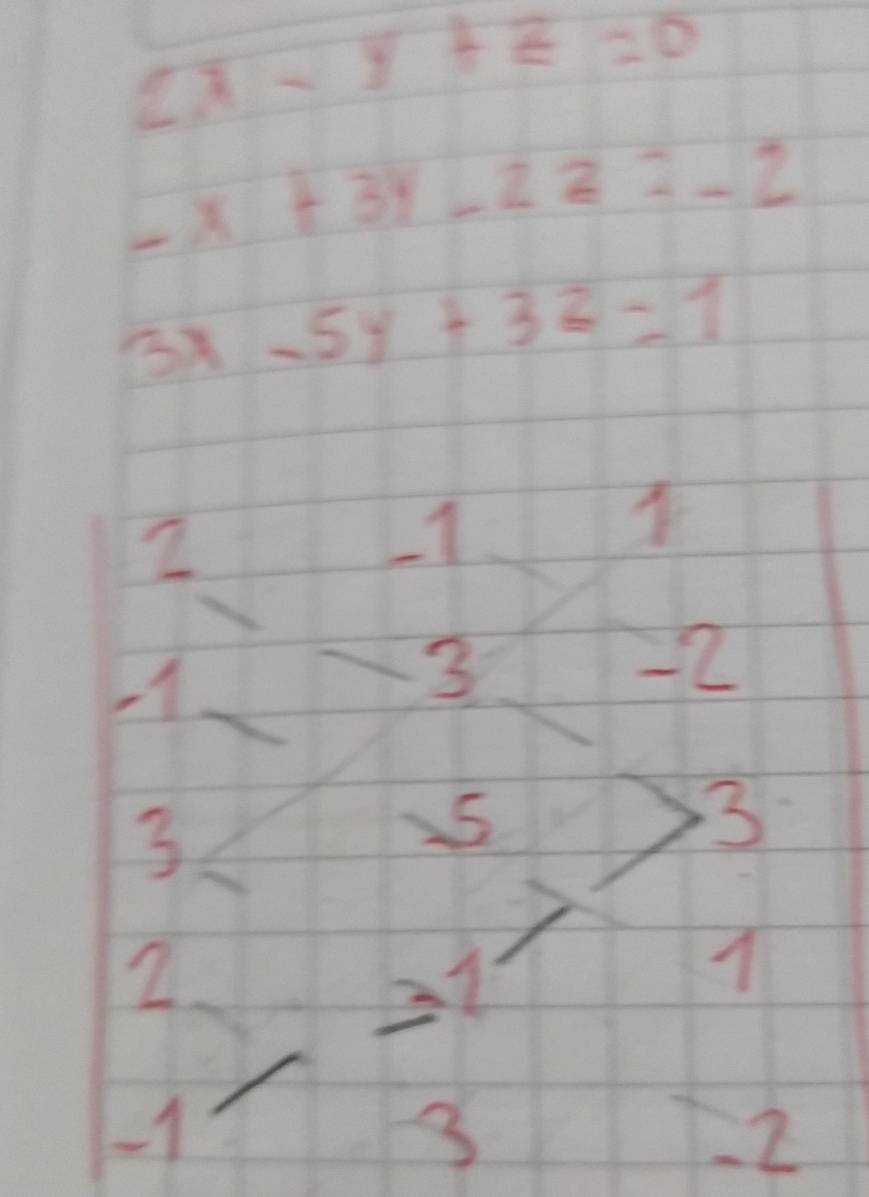 2x - y + z = 0
-x + 3y - 2z = -2
3x - 5y + 3z = 1
2 -1 1
-1 3 -2
3 -5 3
2 -1 1
-1 3 -2